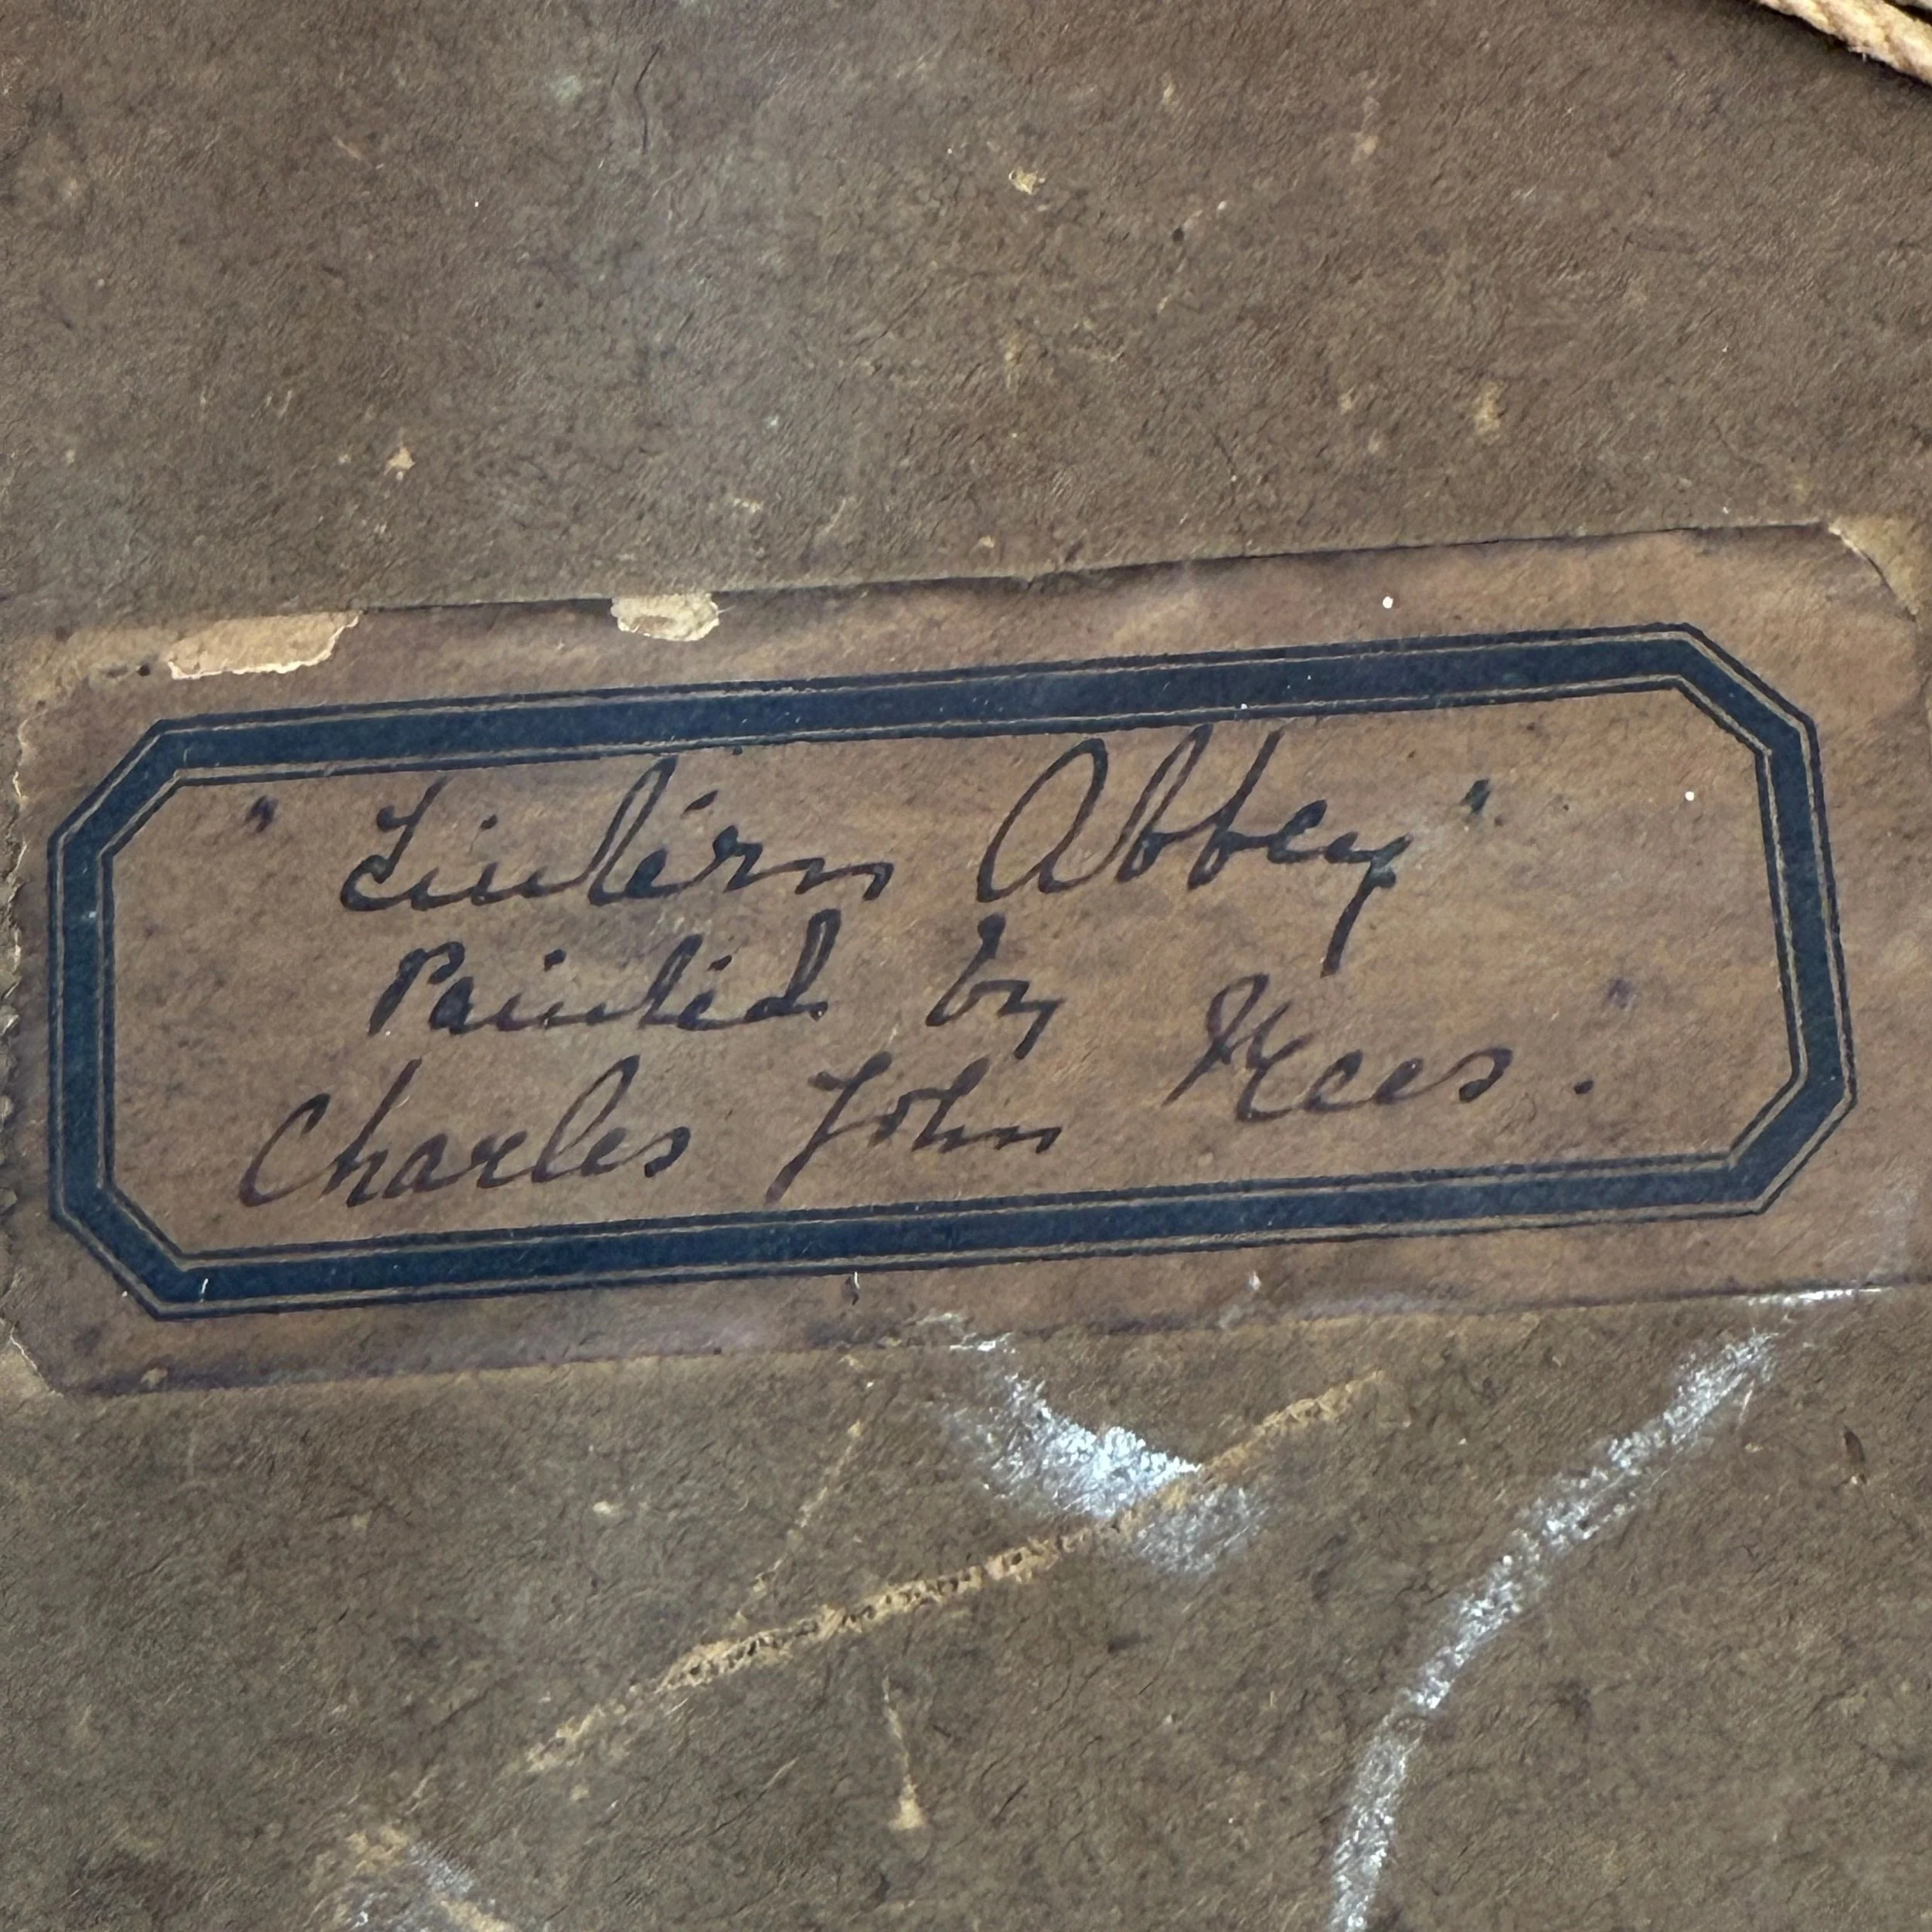 "Tintern Abbey"
Painted by
Charles John Kees.